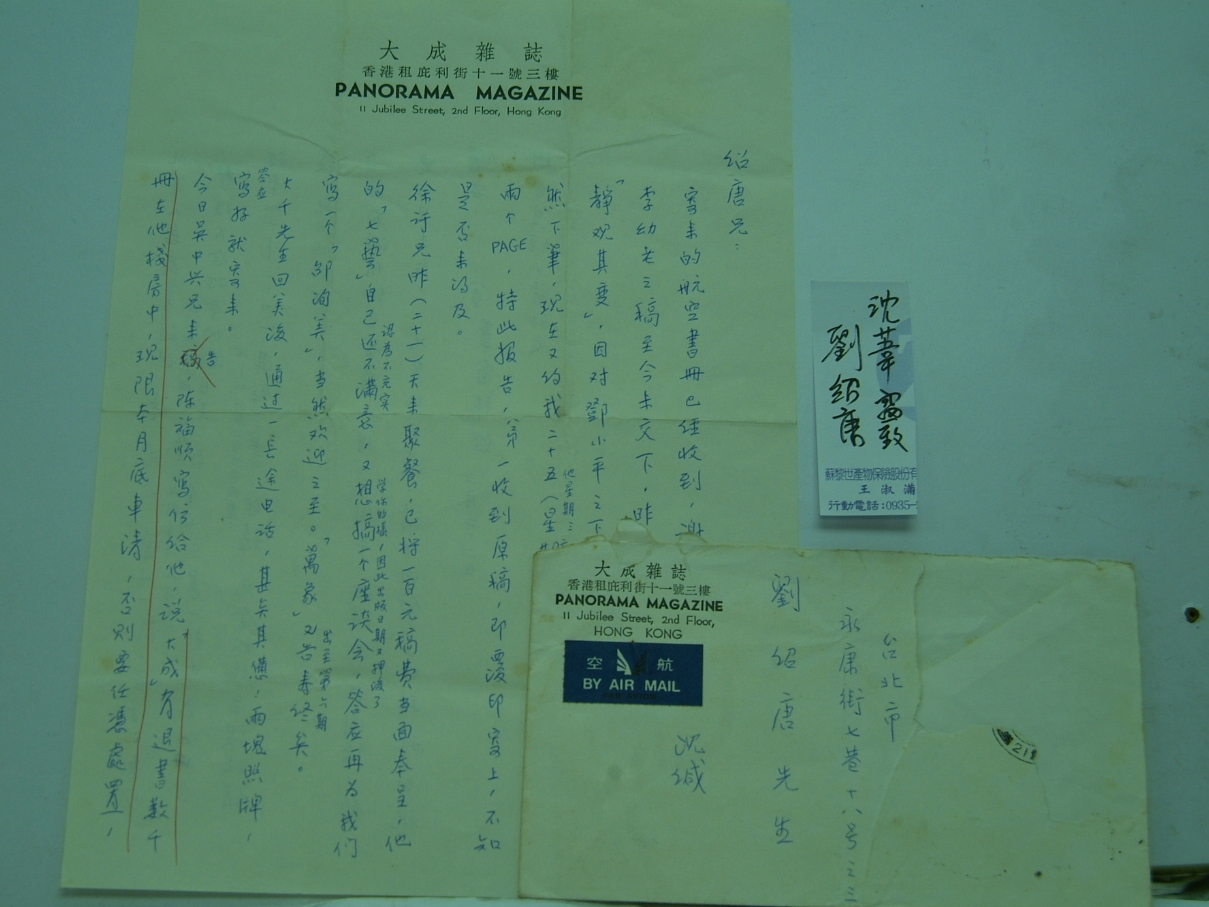 大成雜誌
香港租庇利街十一號三樓
PANORAMA MAGAZINE
11 Jubilee Street, 2nd Floor, Hong Kong
紹唐兄：
寄來的航空書冊已經收到，謝
李幼老之稿至今未交下，昨
「靜观其变」，因对鄧小平之下
然下筆，現在又約我二十五（星
他星期三
兩个PAGE，特此报告，第一收到原稿，即覆印寄上，不知
是否来得及。
徐訏兄昨（二十一）天来聚餐，已将一百元稿费当面奉呈，他
的「七藝」自己还不满意，又想搞一个座谈会，答应再为我們
認為不充实
因此出版日期又押後了
寫一个「邵洵美」，当然欢迎之至。「萬象」又告寿终矣。
出至第六期
大千先生回美後，通过一长途电话，甚矣其憊，兩塊照牌，
答应
寫好就寄来。
今日吳中兴兄来告，陈福順寫信给他，说「大成」有退書数千
冊在他棧房中，现限本月底車清，否则要任憑處置，
沈葦窗致
劉紹唐
蘇黎世產物保險股份有
王淑滿
行動電話:0935-
大成雜誌
香港租庇利街十一號三樓
PANORAMA MAGAZINE
11 Jubilee Street, 2nd Floor,
HONG KONG
空 航
BY AIR MAIL
PAR AVION
台北市
永康街七巷十八号之三
劉紹唐先生
沈缄